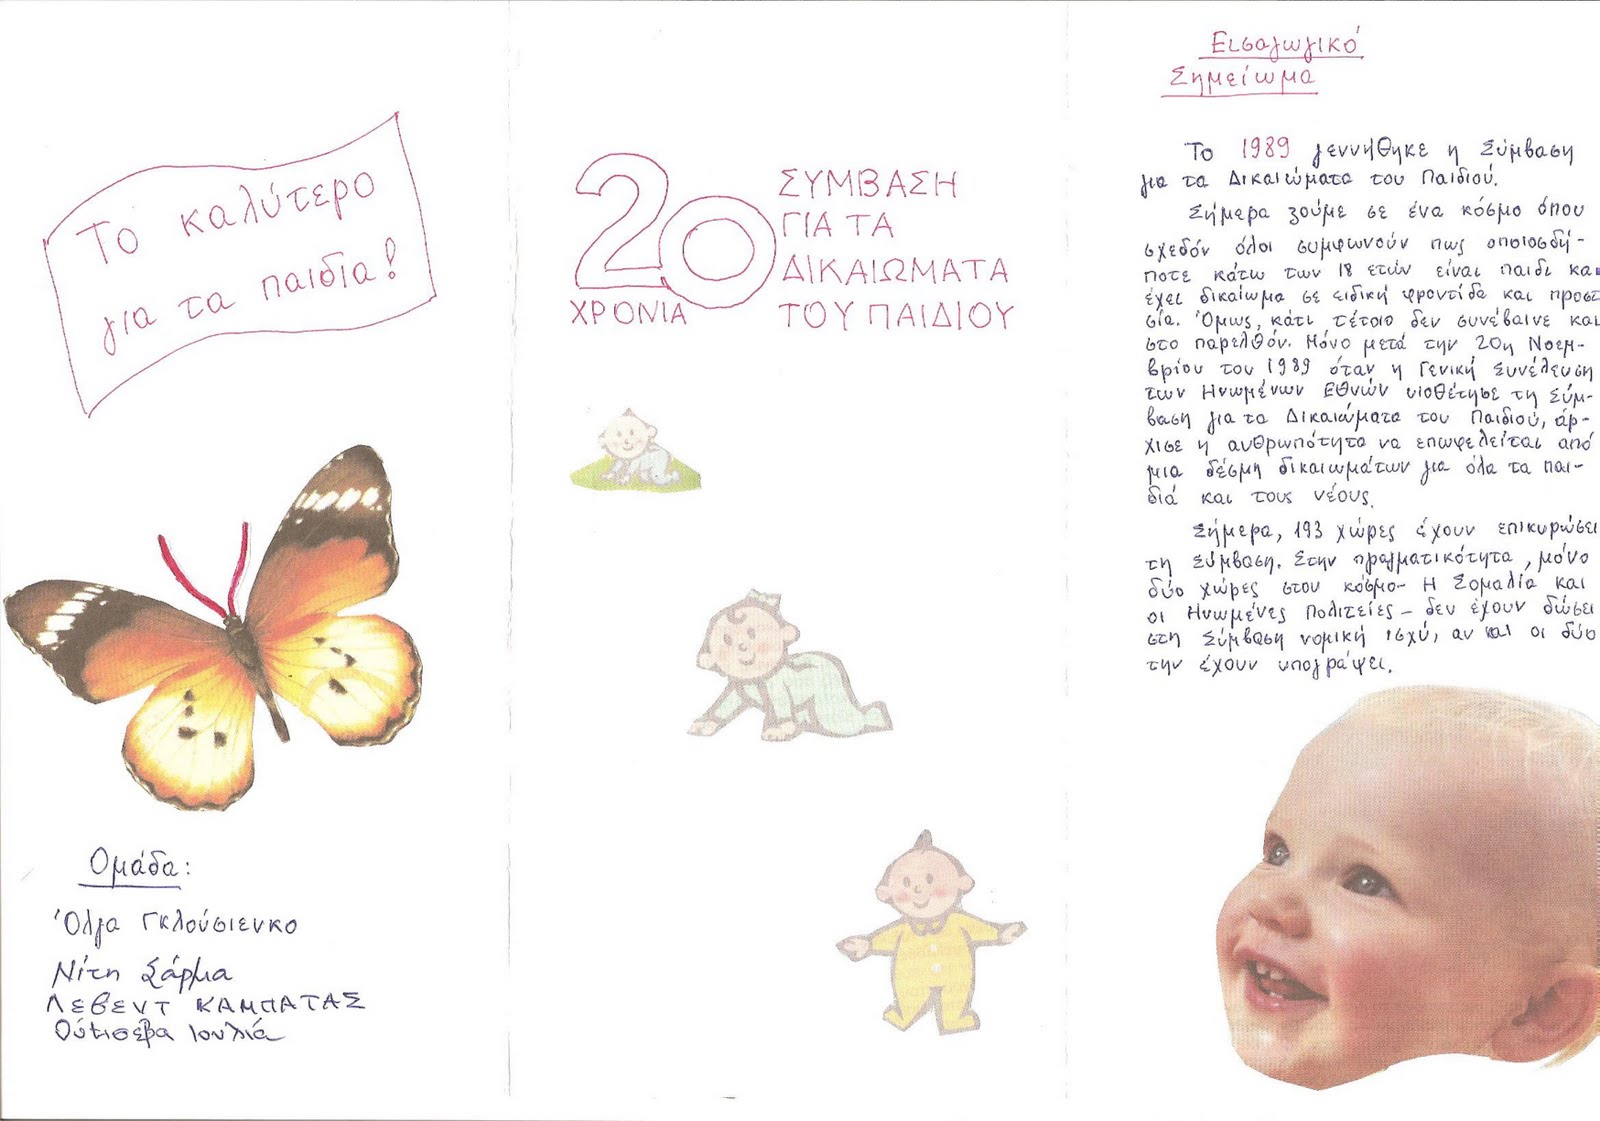 Το καλύτερο
για τα παιδία!
Ομάδα:
Όλγα Γκλούσιενκο
Νίτη Σάρμα
ΛΕΒΕΝΤ ΚΑΜΠΑΤΑΣ
Ούτισεβα Ιουλιά
20
ΧΡΟΝΙΑ
ΣΥΜΒΑΣΗ
ΓΙΑ ΤΑ
ΔΙΚΑΙΩΜΑΤΑ
ΤΟΥ ΠΑΙΔΙΟΥ
Εισαγωγικό
Σημείωμα
Το 1989 γεννήθηκε η Σύμβαση
για τα Δικαιώματα του Παιδιού.
Σήμερα ζούμε σε ένα κόσμο όπου
σχεδόν όλοι συμφωνούν πως οποιοσδή-
ποτε κάτω των 18 ετών είναι παιδι και
έχει δικαίωμα σε ειδική φροντίδα και προστ
σία. Όμως, κάτι τέτοιο δεν συνέβαινε και
στο παρελθόν. Μόνο μετά την 20η Νοεμ-
βρίου του 1989 όταν η Γενική Συνέλευση
των Ηνωμένων Εθνών υιοθέτησε τη Σύμ-
βαση για τα Δικαιώματα του Παιδιού, άρ-
χισε η ανθρωπότητα να επωφελείται από
μια δέσμη δικαιωμάτων για όλα τα παι-
διά και τους νέους.
Σήμερα, 193 χώρες έχουν επικυρώσει
τη Σύμβαση. Στην πραγματικότητα, μόνο
δύο χώρες στον κόσμο- Η Σομαλία και
οι Ηνωμένες Πολιτείες - δεν έχουν δώσει
στη Σύμβαση νομική ισχύ, αν και οι δύο
την έχουν υπογράψει.